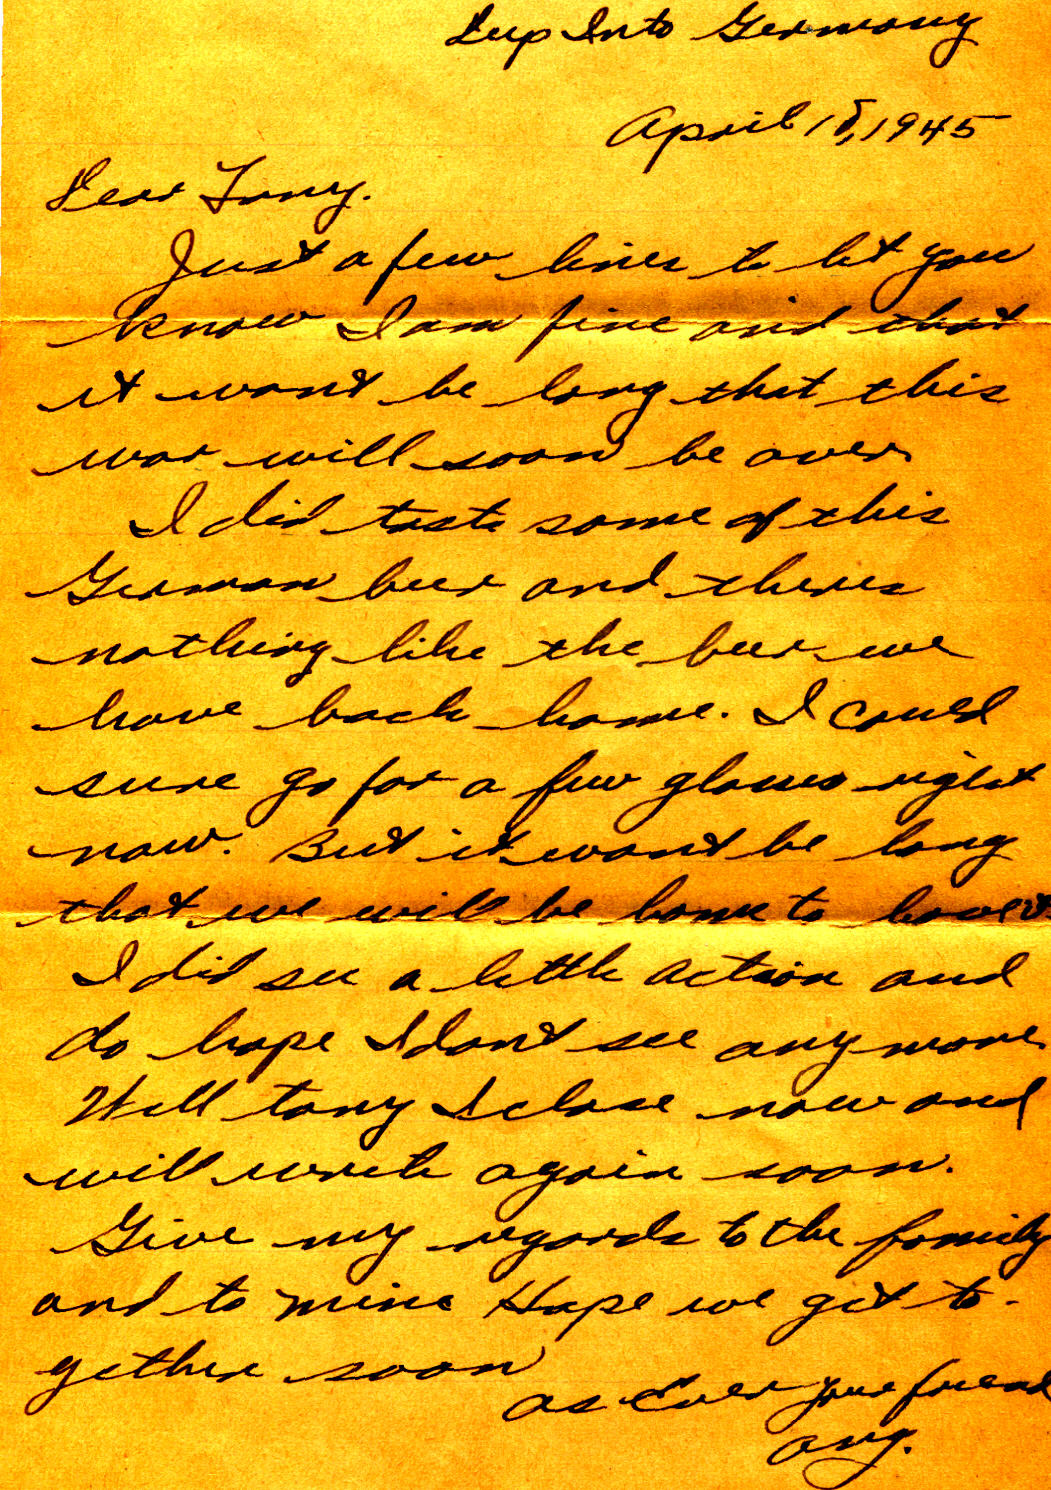 Deep Into Germany
April 18, 1945
Dear Tony.
Just a few lines to let you
know I am fine and that
it wont be long that this
war will soon be over
I did taste some of this
German beer and theres
nothing like the beer we
have back home. I could
sure go for a few glasses right
now. But it wont be long
that we will be home to have it.
I did see a little action and
do hope I dont see any more.
Well tony I close now and
will write again soon.
Give my regards to the family
and to mine Hope we get to-
gether soon
as Ever your friend
Ang.